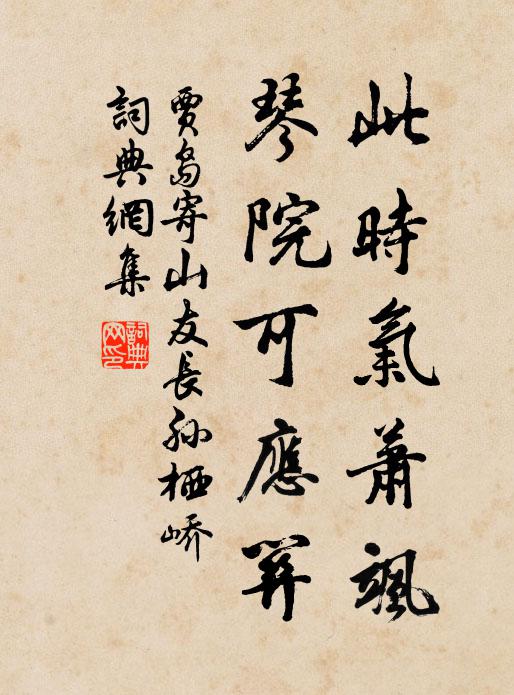 此時氣蕭颯
琴院可應關
賈島寄山友長孫栖嶠
詞典網集
詞典网印